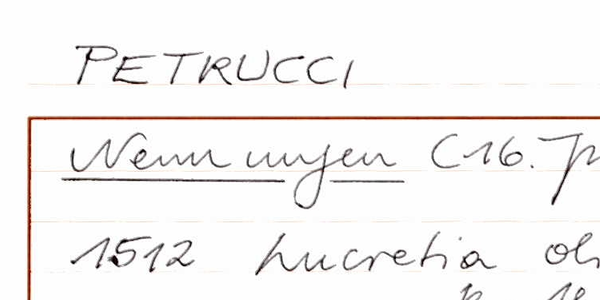 PETRUCCI
Nennungen C16. Jh
1512 Lucretia